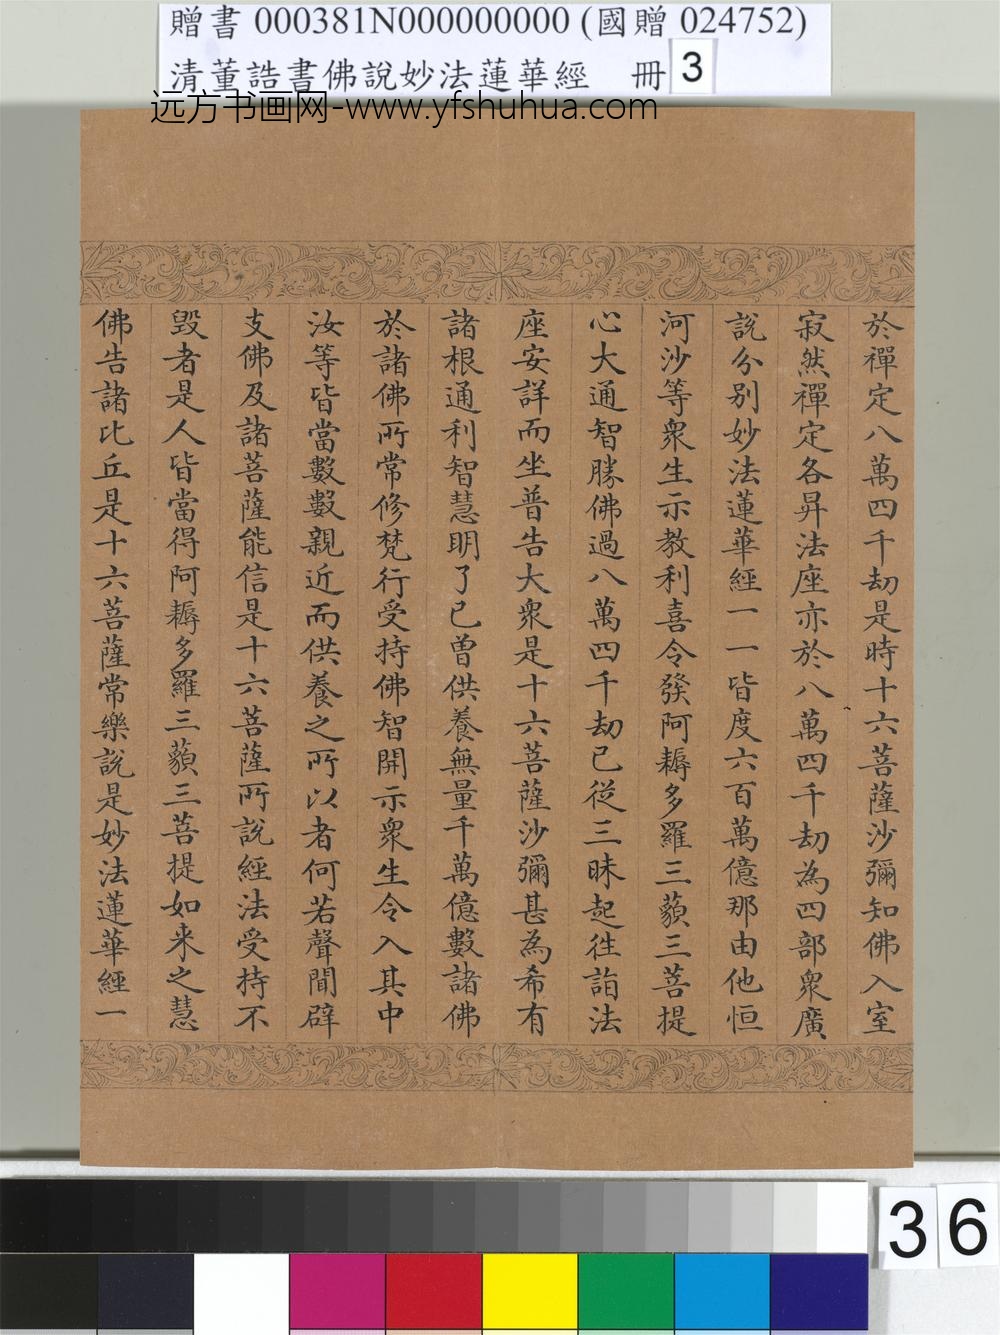 贈書 000381N000000000 (國贈 024752)
清董誥書佛說妙法蓮華經 冊 3
远方书画网-www.yfshuhua.com
於禪定八萬四千劫是時十六菩薩沙彌知佛入室
寂然禪定各昇法座亦於八萬四千劫為四部衆廣
說分別妙法蓮華經一一皆度六百萬億那由他恒
河沙等衆生示教利喜令發阿耨多羅三藐三菩提
心大通智勝佛過八萬四千劫已從三昧起往詣法
座安詳而坐普告大衆是十六菩薩沙彌甚為希有
諸根通利智慧明了已曾供養無量千萬億數諸佛
於諸佛所常修梵行受持佛智開示衆生令入其中
汝等皆當數數親近而供養之所以者何若聲聞辟
支佛及諸菩薩能信是十六菩薩所說經法受持不
毀者是人皆當得阿耨多羅三藐三菩提如来之慧
佛告諸比丘是十六菩薩常樂說是妙法蓮華經一
36